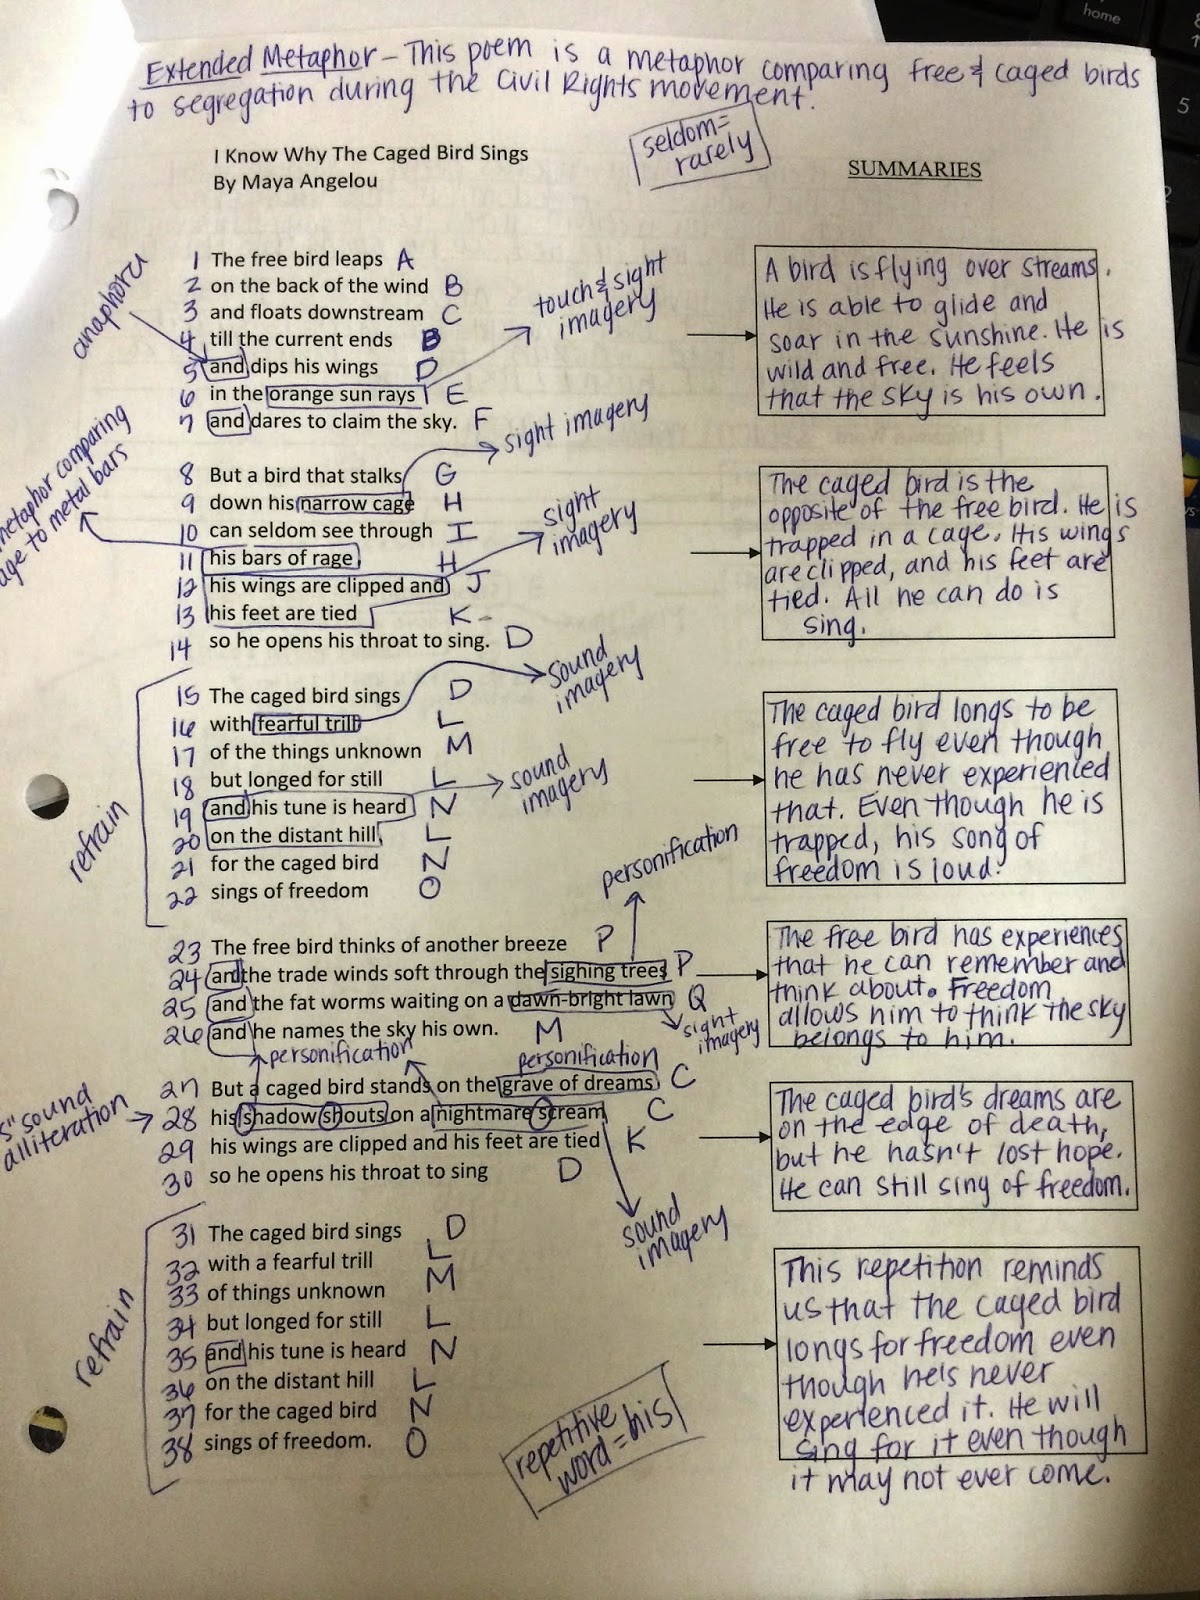 home
5
Extended Metaphor – This poem is a metaphor comparing free & caged birds
to segregation during the Civil Rights movement.
seldom =
rarely
I Know Why The Caged Bird Sings
By Maya Angelou
SUMMARIES
anaphora
1 The free bird leaps A
2 on the back of the wind B
3 and floats downstream C
4 till the current ends B
5 and dips his wings D
6 in the orange sun rays E
7 and dares to claim the sky. F
touch & sight
imagery
A bird is flying over streams.
He is able to glide and
soar in the sunshine. He is
wild and free. He feels
that the sky is his own.
metaphor comparing
age to metal bars
8 But a bird that stalks G
9 down his narrow cage H
10 can seldom see through I
11 his bars of rage H
12 his wings are clipped and J
13 his feet are tied K -
14 so he opens his throat to sing. D
sight imagery
sight
imagery
The caged bird is the
opposite of the free bird. He is
trapped in a cage. His wings
are clipped, and his feet are
tied. All he can do is
sing.
refrain
15 The caged bird sings D
16 with fearful trill L
17 of the things unknown M
18 but longed for still L
19 and his tune is heard N
20 on the distant hill L
21 for the caged bird N
22 sings of freedom O
sound
imagery
sound
imagery
The caged bird longs to be
free to fly even though
he has never experienced
that. Even though he is
trapped, his song of
freedom is loud.
personification
23 The free bird thinks of another breeze P
24 and the trade winds soft through the sighing trees P
25 and the fat worms waiting on a dawn-bright lawn Q
26 and he names the sky his own. M
sight
imagery
The free bird has experiences
that he can remember and
think about. Freedom
allows him to think the sky
belongs to him.
personification
personification
"s" sound
alliteration
27 But a caged bird stands on the grave of dreams C
28 his shadow shouts on a nightmare scream C
29 his wings are clipped and his feet are tied K
30 so he opens his throat to sing D
sound
imagery
The caged bird's dreams are
on the edge of death,
but he hasn't lost hope.
He can still sing of freedom.
refrain
31 The caged bird sings D
32 with a fearful trill L
33 of things unknown M
34 but longed for still L
35 and his tune is heard N
36 on the distant hill L
37 for the caged bird N
38 sings of freedom. O
repetitive
word = his
This repetition reminds
us that the caged bird
longs for freedom even
though he's never
experienced it. He will
sing for it even though
it may not ever come.